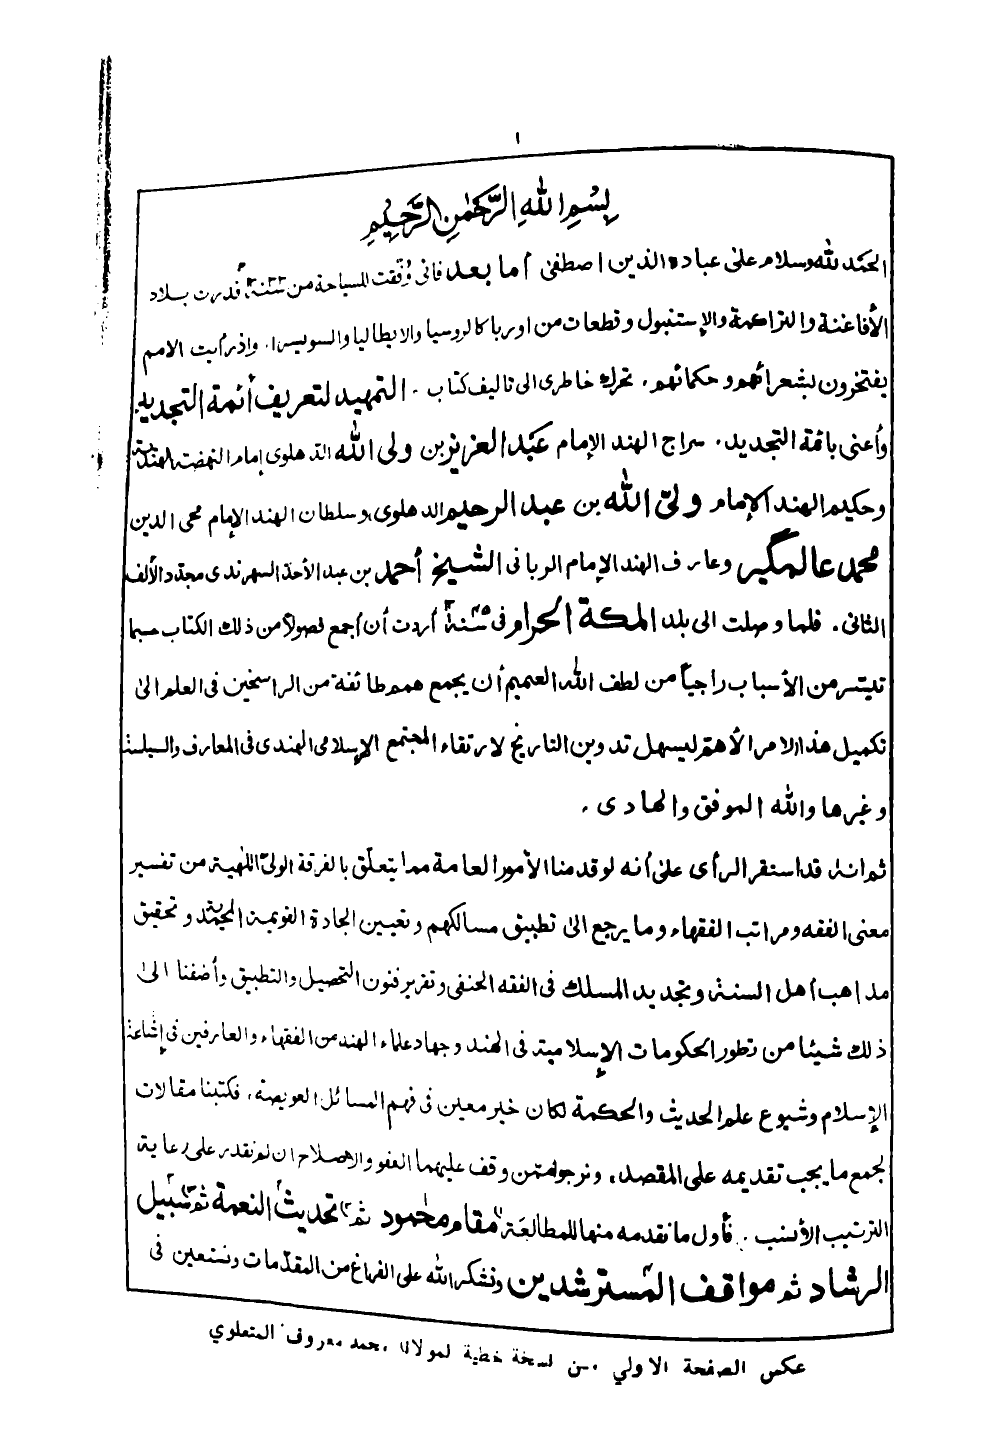 ١
بِسْمِ اللهِ الرَّحْمٰنِ الرَّحِيْمِ
الحمد لله وسلام على عباده الذين اصطفى أما بعد فانى وُفّقت للسياحة من سنة ١٣٣٣ فدرت بلاد
الأفاغنة والتراكمة والإستنبول وقطعات من اوربا كالروسيا والايطاليا والسويسرا. واذ رأيت الامم
يفتخرون بشعرائهم وحكمائهم. تحرك خاطرى الى تاليف كتاب. التمهيد لتعريف أئمة التجديد.
وأعنى بائمة التجديد. سراج الهند الإمام عبد العزيز بن ولى الله الدهلوى إمام النهضة الهندية
وحكيم الهند الإمام ولىّ الله بن عبد الرحيم الدهلوى، وسلطان الهند الإمام محى الدين
محمد عالمگير وعارف الهند الإمام الربانى الشيخ أحمد بن عبد الأحد السهرندى مجدد الألف
الثانى. فلما وصلت الى بلد المكة الحرام فى سنة أردت أن أجمع فصولاً من ذلك الكتاب حسبما
تيسر من الأسباب راجياً من لطف الله العميم أن يجمع همم طائفة من الراسخين فى العلم الىٰ
تكميل هذا الامر الأهم ليسهل تدوين التاريخ لارتقاء المجتمع الإسلامى الهندى فى المعارف والسياسة
وغيرها والله الموفق والهادى.
ثم انه قد استقر الرأى على أنه لو قدمنا الأمور العامة مما يتعلّق بالفرقة الولىّ اللّهية من تفسير
معنى الفقه ومراتب الفقهاء وما يرجع الىٰ تطبيق مسالكهم وتعيين الجادة القويمة المجتهدية وتحقيق
مذاهب أهل السنة وتجديد المسلك فى الفقه الحنفى وتقرير فنون التحصيل والتطبيق وأضفنا الىٰ
ذلك شيئا من تطور الحكومات الإسلامية فى الهند وجهاد علماء الهند من الفقهاء والعارفين فى إشاعة
الإسلام وشيوع علم الحديث والحكمة لكان خير معين فى فهم المسائل العويصة. فكتبنا مقالات
لجمع ما يجب تقديمه على المقصد. ونرجو ممن وقف عليهما العفو والاصلاح ان لم نقدر على رعاية
الترتيب الأنسب. فأول ما نقدمه منها للمطالعة مقام محمود ثم تحديث النعمة ثم سبيل
الرشاد ثم مواقف المسترشدين ونشكر الله على الفراغ من المقدّمات ونستعين فى
عكس الصفحة الاولي من نسخة خطية لمولانا محمد معروف المتعلوي